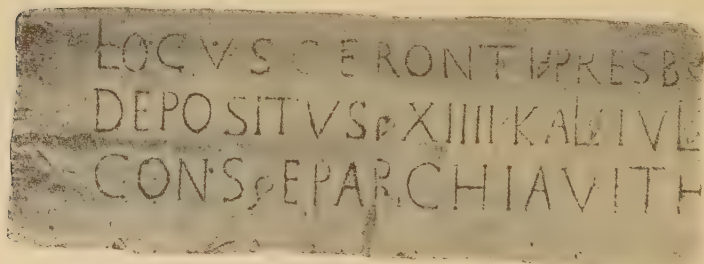 LOCVS GERONTI PRESB
DEPOSITVS XIIII KAL IVL
CONS EPARCHIAVITI